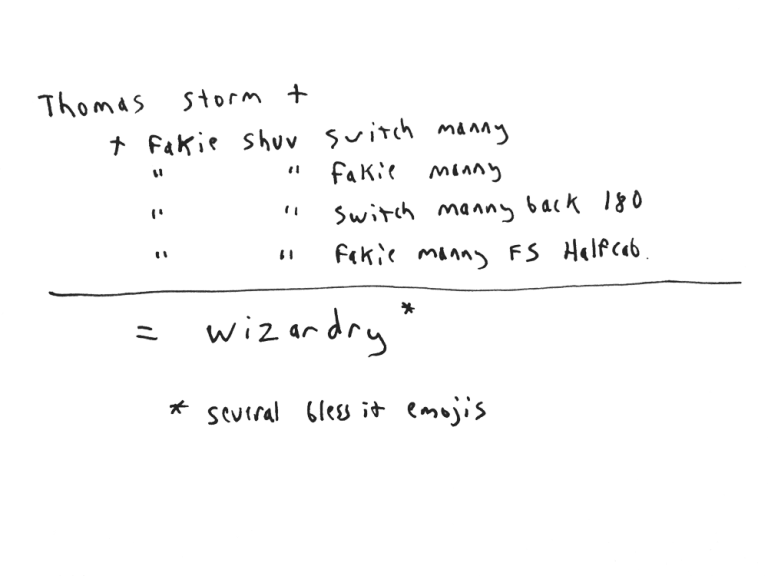 Thomas Storm +
+ Fakie Shuv Switch manny
" " Fakie manny
" " Switch manny back 180
" " Fakie manny FS Halfcab.
= wizardry *
* several bless it emojis